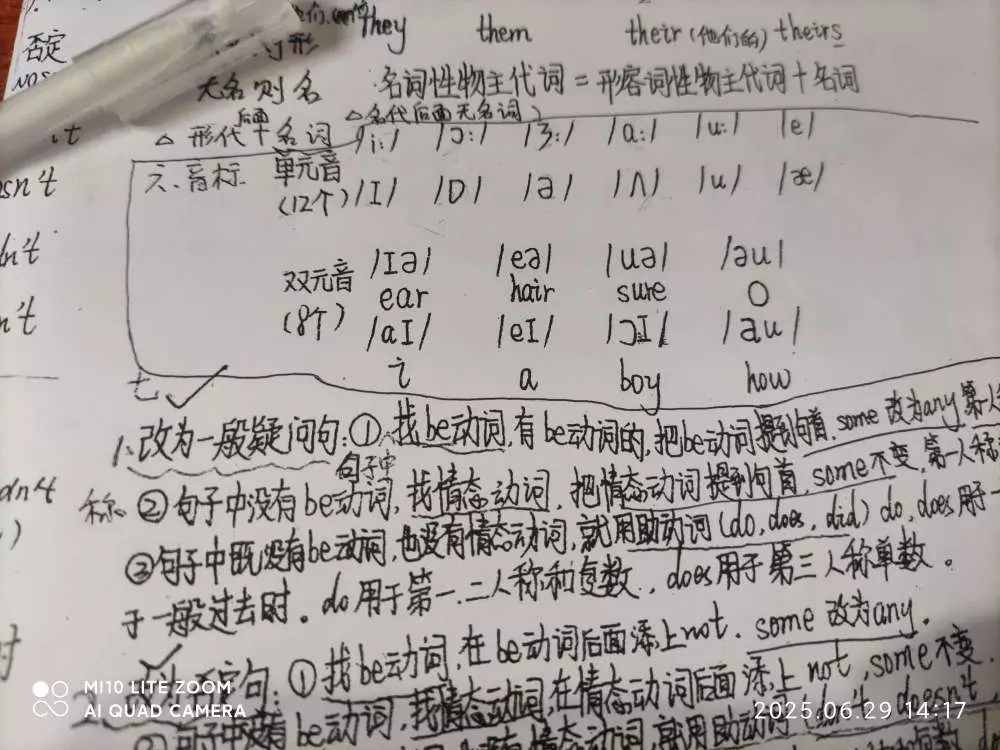 they them their (他们的) theirs
否定
无名则名 名词性物主代词 = 形容词性物主代词 + 名词
△ 形代后面+名词 △名代后面无名词
it
六、音标 单元音 (12个) /i:/ /ɔ:/ /ɜ:/ /ɑ:/ /u:/ /e/
/I/ /ɒ/ /ə/ /ʌ/ /u/ /æ/
双元音 (8个) /Iə/ /eə/ /uə/ /əu/
ear hair sure O
/aI/ /eI/ /ɔI/ /au/
i a boy how
七
1、改为一般疑问句:① 找be动词,有be动词的,把be动词提到句首,some 改为any 第一人
称 ② 句子中没有be动词,找句子中情态动词,把情态动词提到句首,some不变,第一人称
③ 句子中既没有be动词,也没有情态动词,就用助动词(do, does, did) do, does 用于一
于一般过去时。do 用于第一、二人称和复数,does 用于第三人称单数。
定句:① 找be动词,在be动词后面添上not. some 改为any.
② 句子中没有be动词,找情态动词,在情态动词后面添上not,some不变
有情态动词,就用助动词 doesn't,
MI 10 LITE ZOOM
AI QUAD CAMERA
2025.06.29 14:17